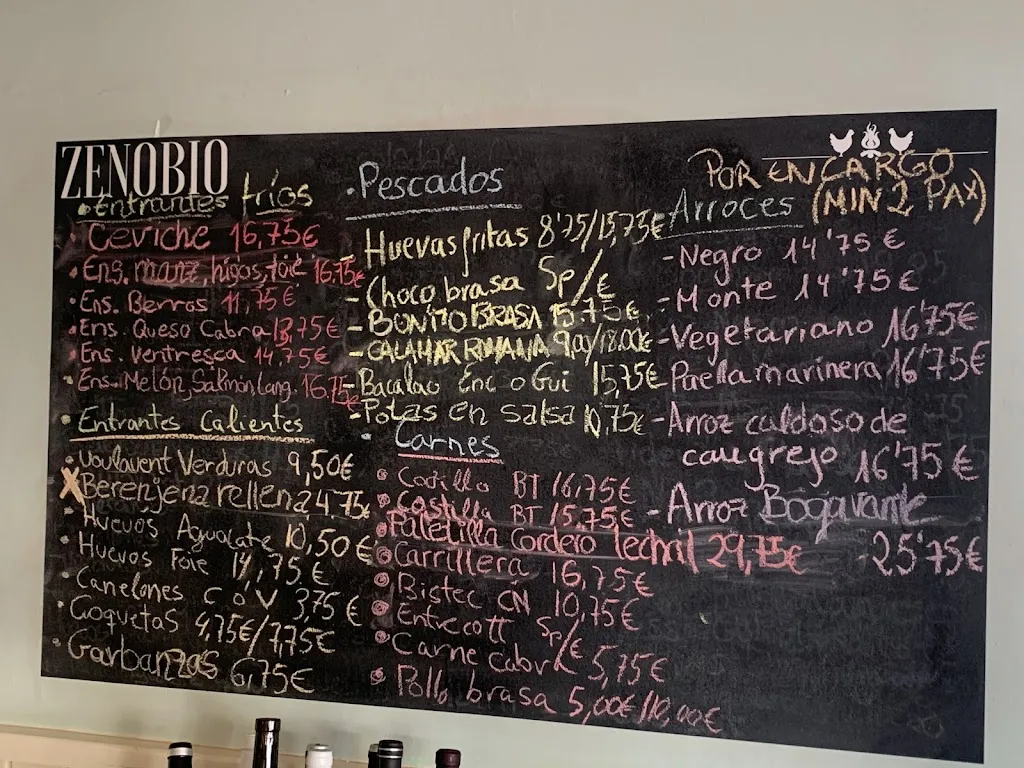 ZENOBIO
• Entrantes fríos
• Ceviche 16,75€
• Ens. manz, higos, foie 16.75
• Ens. Berros 11,75€
• Ens. Queso Cabra 13,75€
• Ens. Ventresca 14,75€
• Ens. Melón, Salmón, lang. 16.75
• Entrantes Calientes
• Voulavent Verduras 9,50€
X Berenjena rellena 4.75€
• Huevos Aguacate 10,50€
• Huevos Foie 14,75€
• Canelones C ó V 3,75€
• Coquetas 4,75€/7,75€
• Garbanzos 6,75€
• Pescados
- Huevas fritas 8'75/15,75€
- Choco brasa Sp/€
- BONITO BRASA 15.75€
- CALAMAR ROMANA 9,00/18.00€
- Bacalao Enc o Gui 15,75€
- Potas en salsa 10,75€
• Carnes
• Costilla BT 16,75€
• Costilla BT 15,75€
• Paletilla Cordero lechal 29,75€
• Carrillera 16,75€
• Bistec CN 10,75€
• Entrecott Sp/€
• Carne cabra 5,75€
• Pollo brasa 5,00€/10,00€
POR ENCARGO
Arroces (MIN 2 PAX)
- Negro 14'75€
- Monte 14'75€
- Vegetariano 16'75€
- Paella marinera 16'75€
- Arroz caldoso de
cangrejo 16'75€
- Arroz Bogavante
- 25'75€